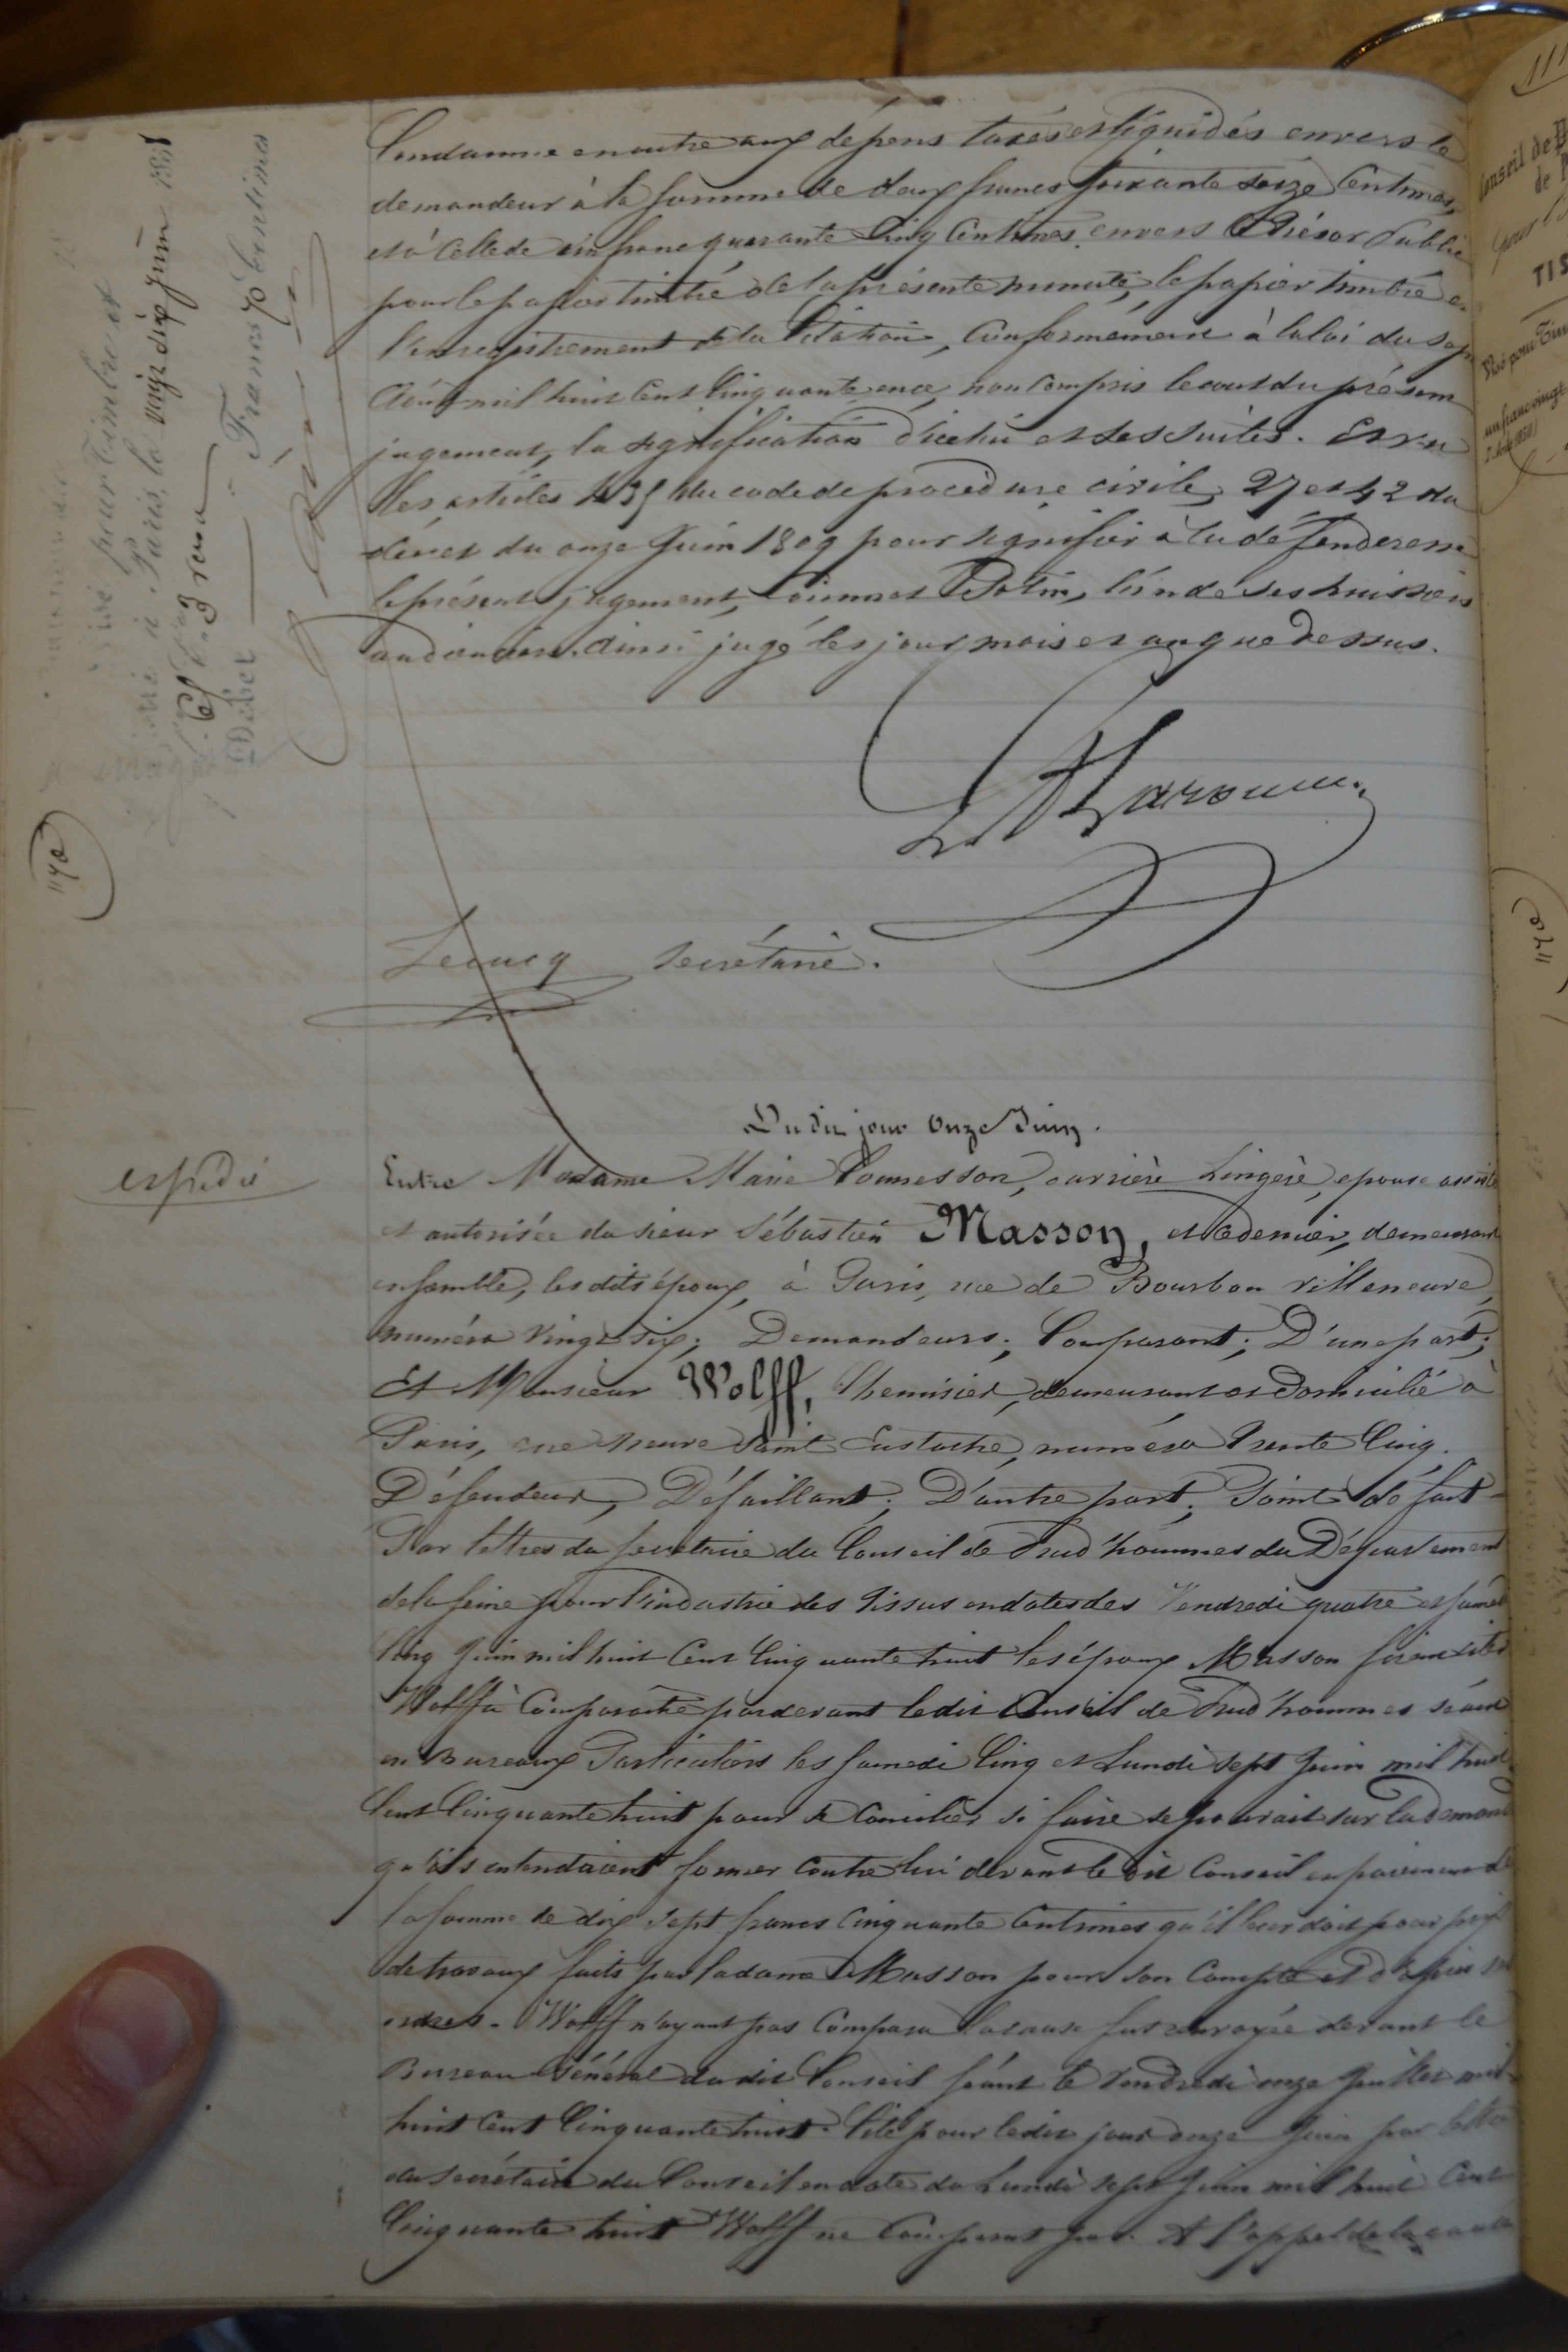 Condamne en outre aux dépens taxés et liquidés envers le
demandeur à la somme de deux francs soixante seize centimes,
et à celle de un franc quarante cinq centimes envers le Trésor Public
pour le papier timbré de la présente minute, le papier timbré et
l'enregistrement de la citation, conformément à la loi du sept
août mil huit cent cinquante, non compris le coût du présent
jugement, la signification d'icelui et ses suites. Et vu
les articles 435 du code de procédure civile, 27 et 42 du
décret du onze Juin 1809 pour signifier à la défenderesse
le présent jugement, commet Potin, l'un de ses huissiers
audienciers. Ainsi jugé les jour mois et an que dessus.
Lecucq secrétaire.
Du dit jour onze Juin.
Entre Madame Marie Connesson, ouvrière Lingère, épouse assistée
et autorisée du sieur Sébastien Masson, et ce dernier, demeurant
ensemble, les dits époux, à Paris, rue de Bourbon Villeneuve,
numéro vingt six; Demandeurs; Comparant; D'une part;
Et Monsieur Wolff, Chemisier, demeurant et domicilié à
Paris, rue neuve Saint Eustache, numéro trente cinq.
Défendeur, Défaillant; D'autre part; Point de fait -
Par lettres du secrétaire du Conseil de Prud'hommes du Département
de la Seine pour l'industrie des Tissus en dates des Vendredi quatre et samedi
cinq Juin mil huit cent cinquante huit les époux Masson firent citer
Wolff à comparaître pardevant le dit Conseil de Prud'hommes séant
en Bureaux Particuliers les samedi cinq et Lundi sept Juin mil huit
cent cinquante huit pour se concilier si faire se pouvait sur la demande
qu'ils entendaient former contre lui devant le dit Conseil en paiement de
la somme de dix sept francs cinquante centimes qu'il leur doit pour prix
de travaux faits par la dame Masson pour son compte et d'après ses
ordres. Wolff n'ayant pas comparu la cause fut renvoyée devant le
Bureau Général du dit Conseil séant le Vendredi onze Juillet mil
huit cent cinquante huit. Cité pour le dit jour onze Juin par lettre
du secrétaire du Conseil en date du Lundi sept Juin mil huit cent
cinquante huit Wolff ne comparut pas. A l'appel de la cause
expédié
Visé pour Timbre et
à Paris, le vingt dix Juin 185
Débet Francs 70 Centimes